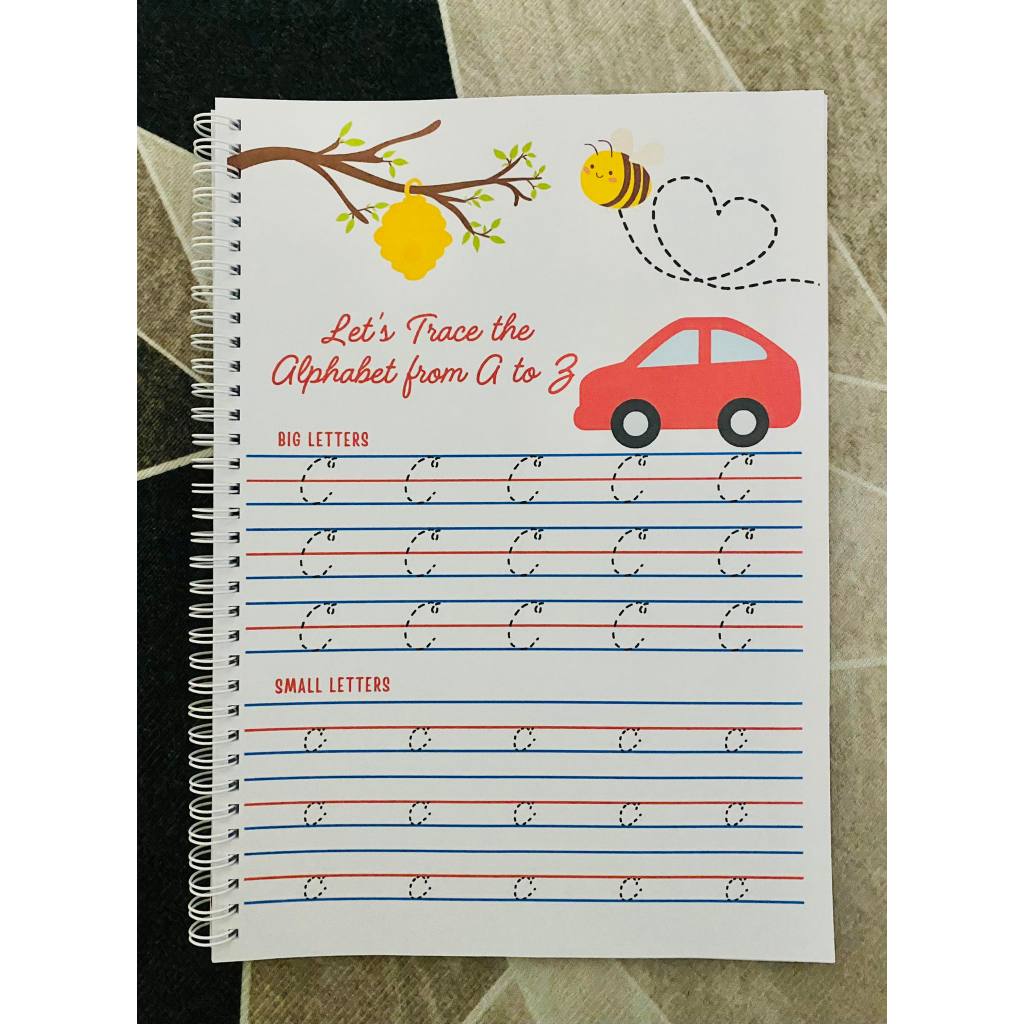 Let's Trace the
Alphabet from A to Z
BIG LETTERS
C C C C C
C C C C C
C C C C C
SMALL LETTERS
c c c c c
c c c c c
c c c c c